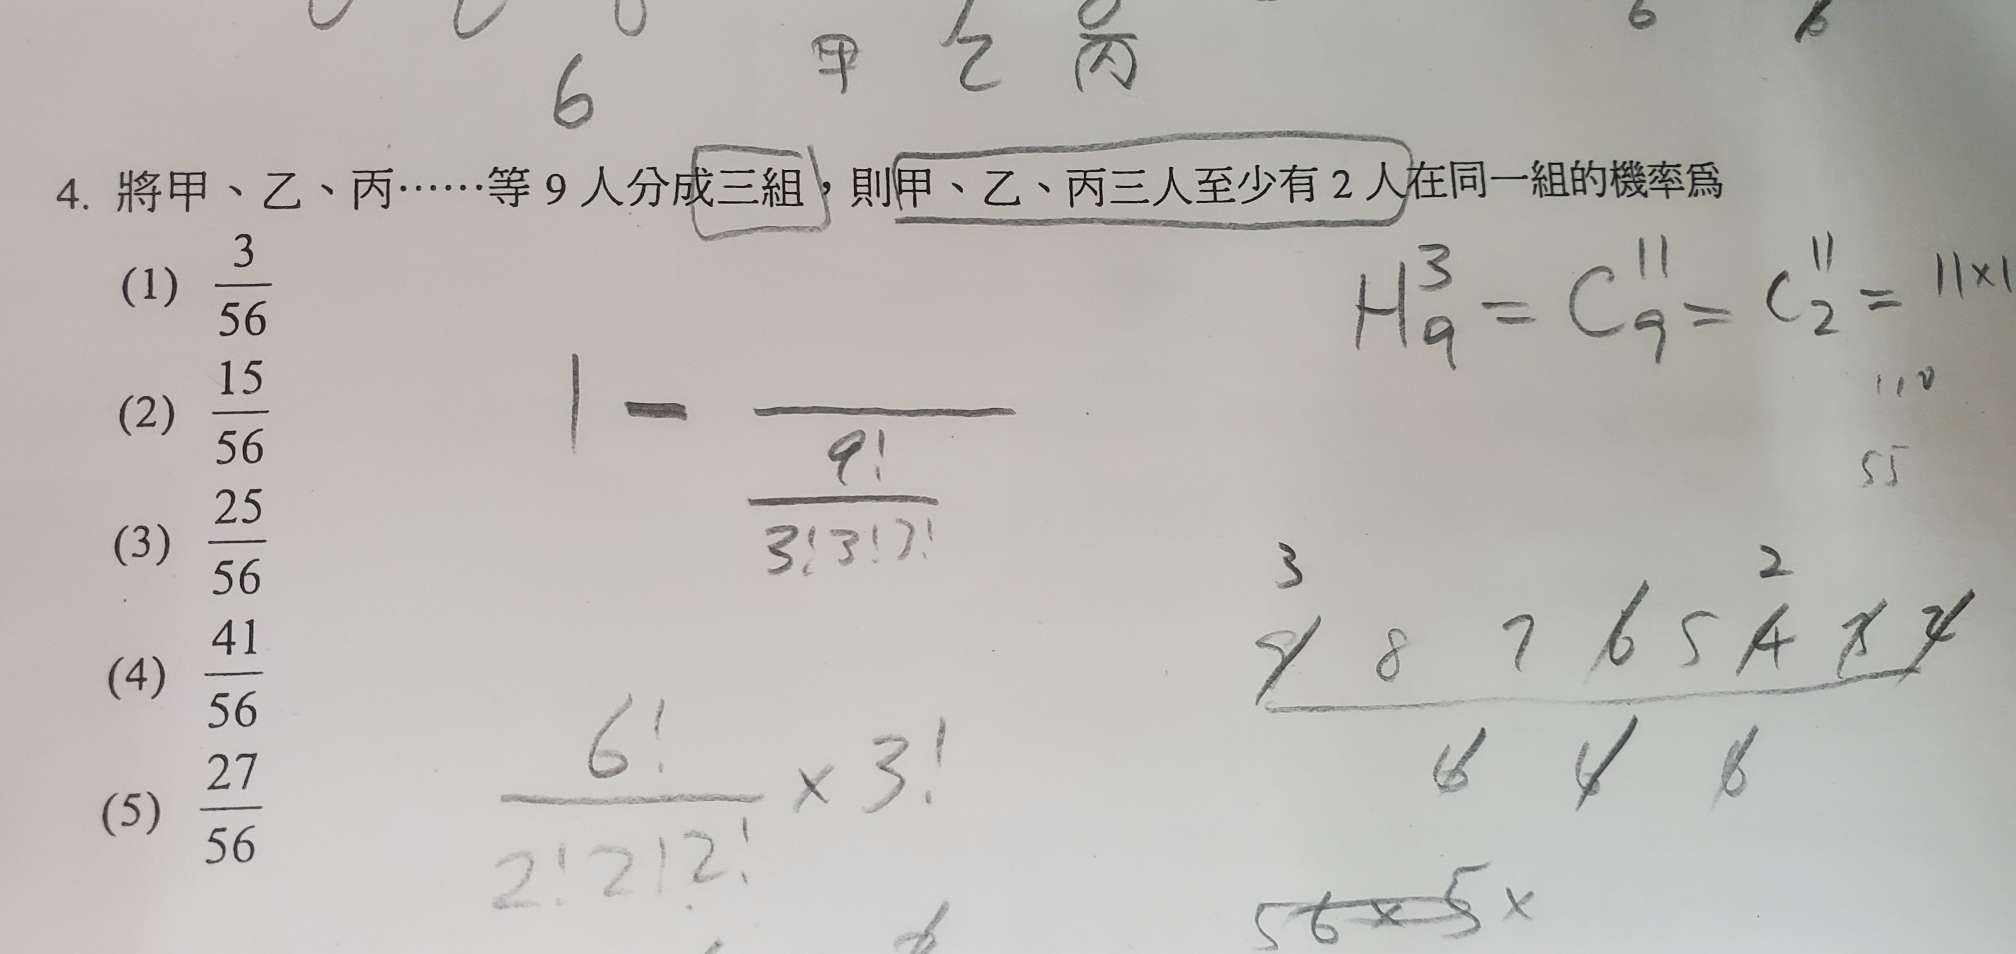 6
甲 乙 丙
6 6
4. 將甲、乙、丙……等 9 人分成三組，則甲、乙、丙三人至少有 2 人在同一組的機率爲
(1) 3/56
(2) 15/56
(3) 25/56
(4) 41/56
(5) 27/56
H³₉ = C¹¹₉ = C¹¹₂ = 11×1
110
55
1 -
9!
3!3!3!
3 2
9 8 7 6 5 4 3 2
6 6 6
6!/2!2!2! × 3!
56×5×